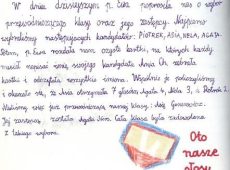 W dniu dzisiejszym p. Ewa poprosiła nas o wybór
przewodniczącego klasy oraz jego zastępcy. Najpierw
wybraliśmy następujących kandydatów: PIOTREK, ASIA, NELA, AGATA.
p. Ewa rozdała nam czyste kartki, na których każdy
musiał napisać imię swojego kandydata. Ania Ch. zebrała
kartki i odczytała wszystkie imiona. Wspólnie je policzyliśmy
i okazało się, że Asia otrzymała 7 głosów, Agata 4, Nela 3, a Piotrek 2.
klasy: Asię
Jej zastępcą została Agata. Cała klasa była zadowolona
z takiego wyboru.
Oto
nasze
głosy